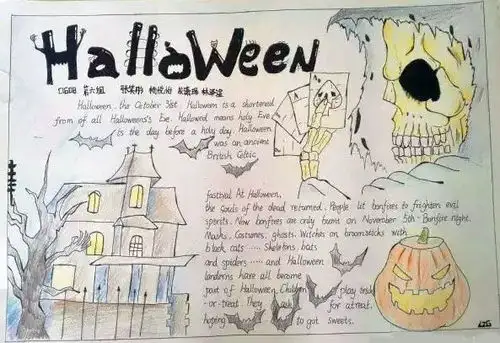 HallOWeen
Halloween, the October 31st. Halloween is a shortened
from of all Hallowens's Eve. Hallowend means holy Eve
is the day before a holy day. Halloween
was an ancient
British Celtic
festival At Halloween,
the souls of the dead returned. People lit bonfires to frighten evil
spirits. Now bonfires are only burnt on November 5th - Bonfire night.
Masks, Costumes, ghosts. Witches on broomsticks with
black cats ...... Skeletons, bats
and spiders ...... and Halloween
lanterns have all become
part of Halloween. Children play trick
-or-treat. They ask for a treat.
hoping to got sweets.